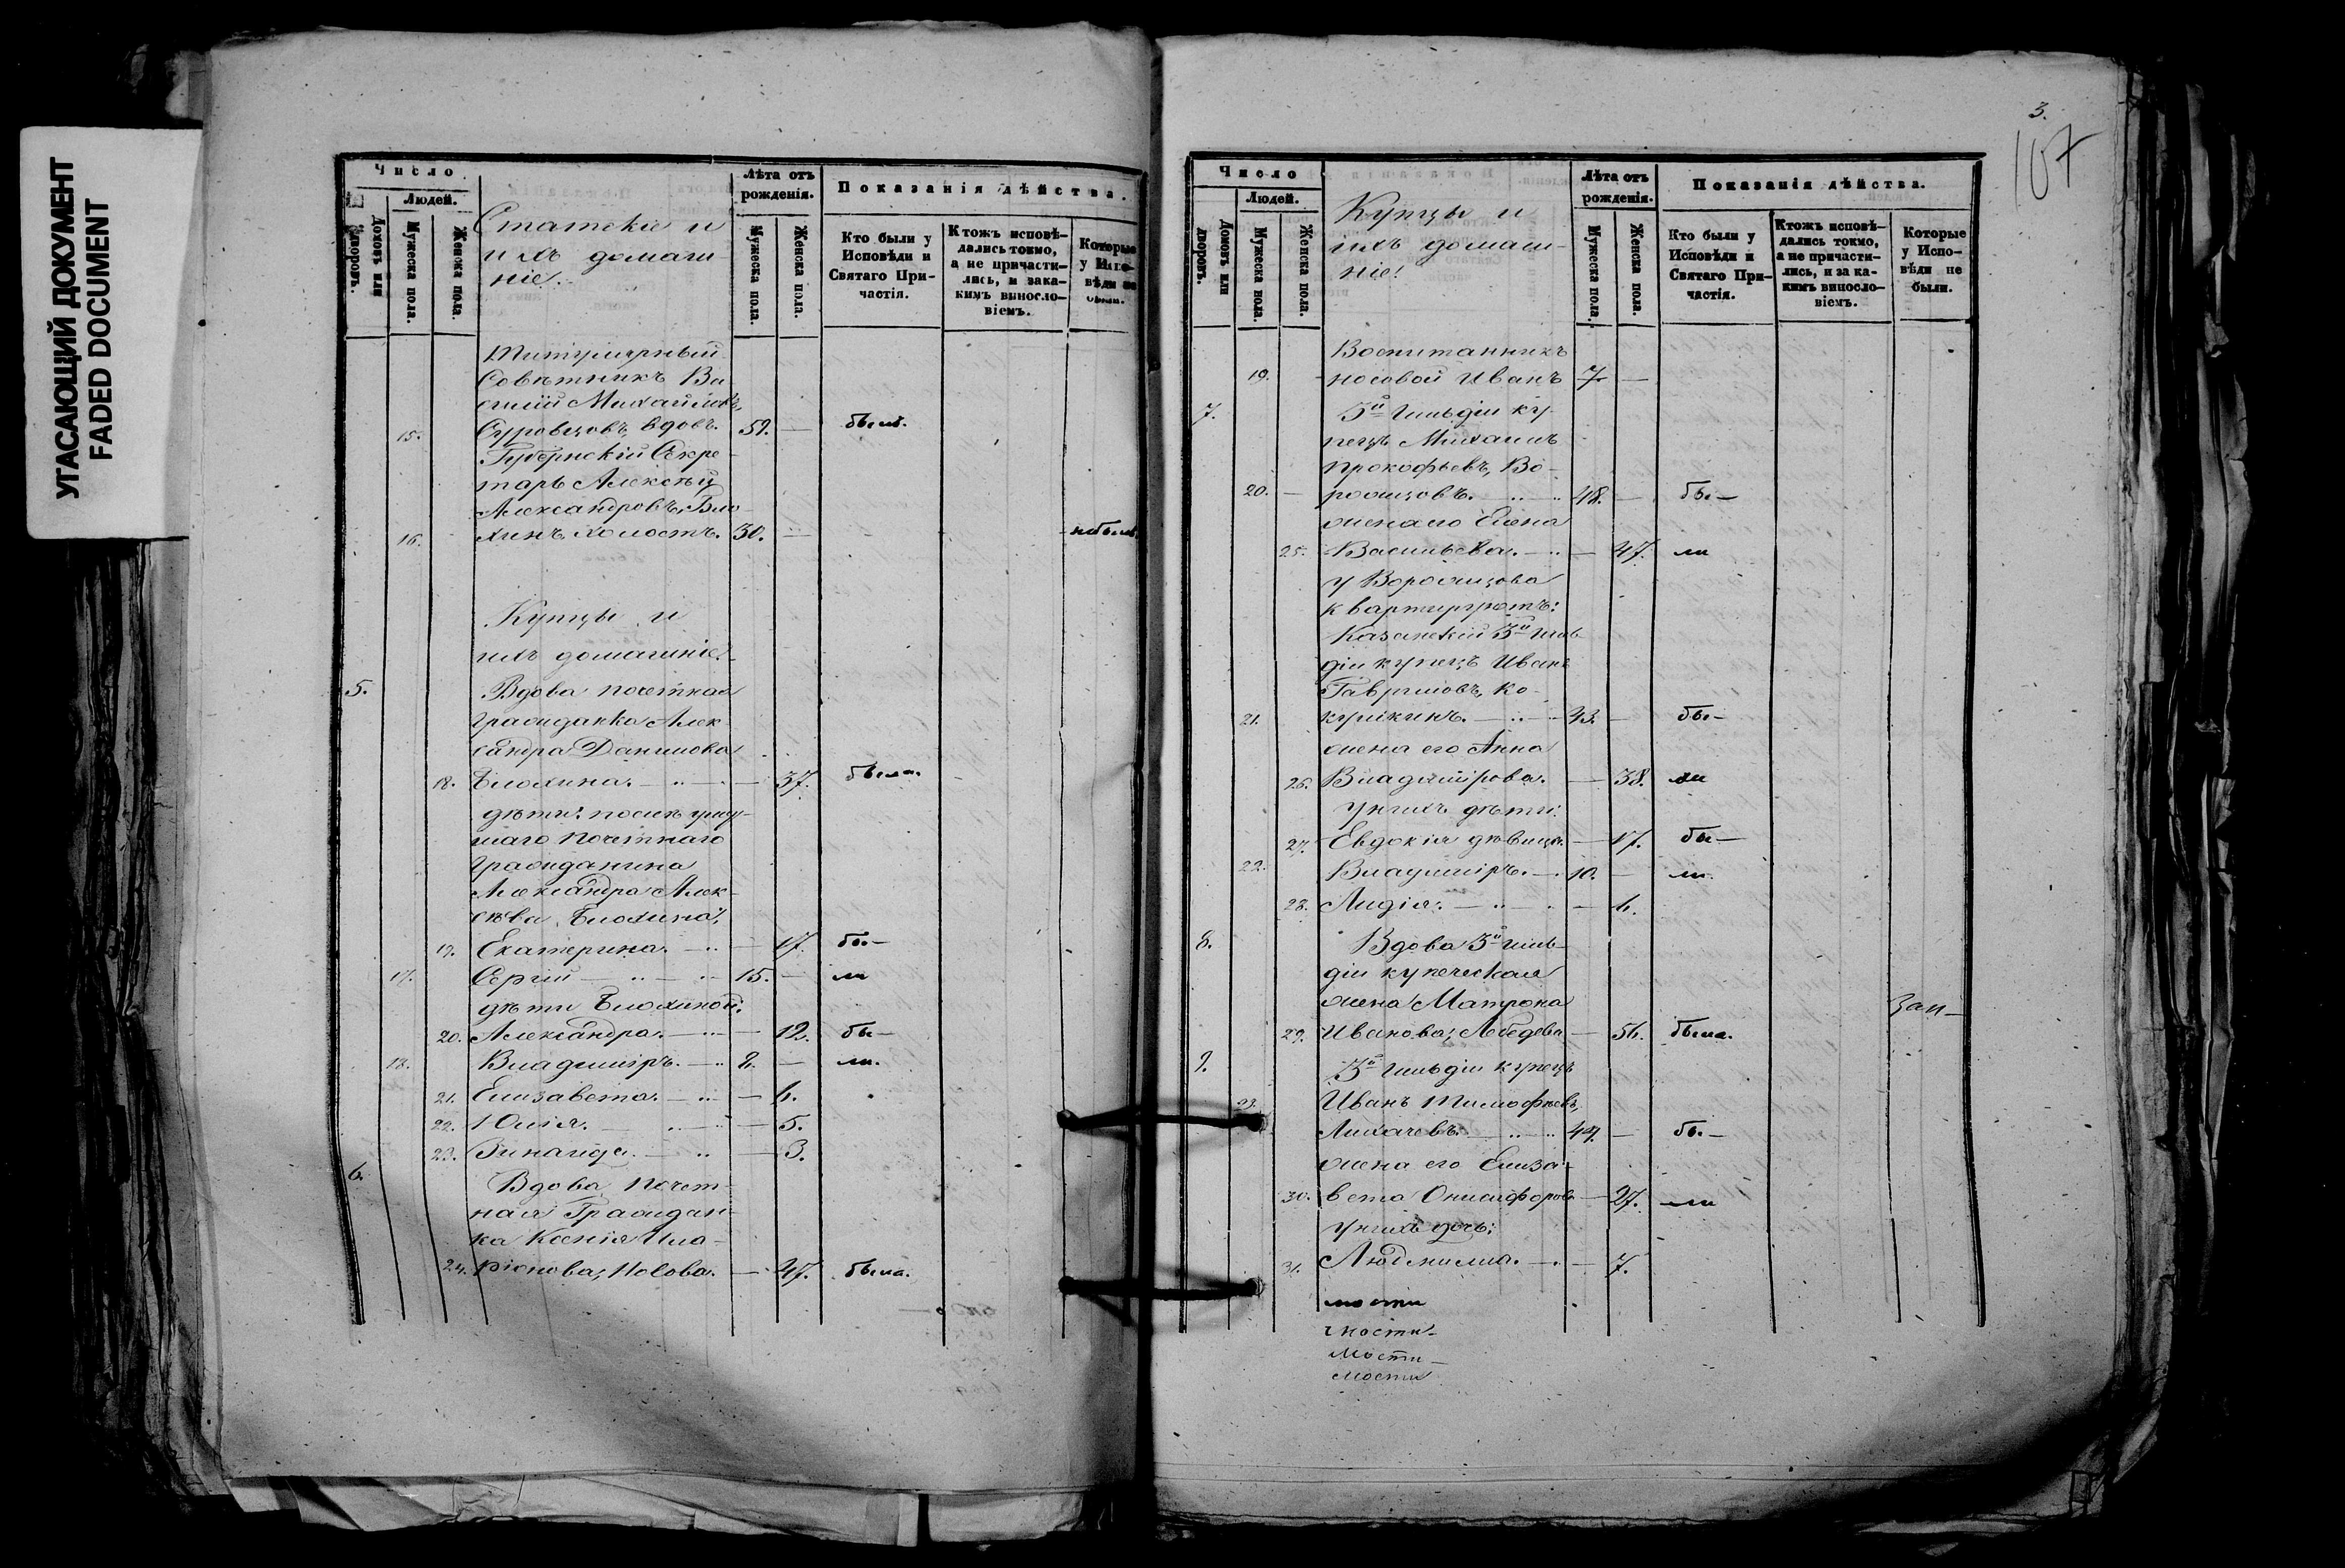 УГАСАЮЩИЙ ДОКУМЕНТ
FADED DOCUMENT
Число
Домовъ или дворовъ.
Людей.
Мужеска пола.
Женска пола.
Статскіе и
ихъ домаш-
ніе.
Лѣта отъ рожденія.
Мужеска пола.
Женска пола.
Показанія дѣйства.
Кто были у Исповѣди и Святаго При-частія.
Ктожъ исповѣ-дались токмо, а не причасти-лись, и зака-кимъ виносло-віемъ.
Которые у Испо-вѣди не были.
Титулярный
Совѣтникъ Ва
силій Михайловъ,
15. Суровцовъ, вдовъ. 59. — былъ.
Губернскій Секре-
тарь Алексѣй
Александровъ, Бло-
16. хинъ холостъ. 30. — небылъ
Купцы и
ихъ домашніе.
5. Вдова почетная
гражданка Алек-
сандра Данилова
18. Блохина. — 37. была.
дѣти: послѣ умер-
шаго почетнаго
гражданина
Александра Алек-
сѣева Блохина,
19. Екатерина. — 17. бы-
17. Сергій — 15. — ли
дѣти Блохиной.
20. Александра. — 12. бы-
18. Владиміръ. — 8. — ли.
21. Елизавета. — 6.
22. Юлія. — 5.
23. Зинаида. — 3.
6. Вдова почет-
ная Граждан-
ка Ксенія Ила-
24. ріонова, Носова. — 47. была.
3.
107
Число
Домовъ или дворовъ.
Людей.
Мужеска пола.
Женска пола.
Купцы и
ихъ домаш-
ніе.
Лѣта отъ рожденія.
Мужеска пола.
Женска пола.
Показанія дѣйства.
Кто были у Исповѣди и Святаго При-частія.
Ктожъ исповѣ-дались токмо, а не причасти-лись, и за ка-кимъ виносло-віемъ.
Которые у Испо-вѣди не были.
Воспитанникъ
19. Носовой Иванъ 7. —
7. 3й гильдіи ку-
пецъ Михаилъ
Прокофьевъ, Во-
20. — рожцовъ. — 48. — бы-
жена его Елена
25. Васильева. — 47. ли
у Ворожцова
квартируютъ:
Казанскій 3й гиль
діи купецъ Иванъ
Гавриловъ, Ко-
21. курікинъ. — 43. — бы-
жена его Анна
26. Владимірова. — 38. ли
у нихъ дѣти:
27. Евдокія дѣвица. — 17. бы-
22. Владиміръ. — 10. — ли.
28. Лидія. — 6.
8. Вдова 3й гиль-
діи купеческая
жена Матрона Зап-
29. Иванова, Лебедева — 56. была.
9. 3й гильдіи купецъ
23. Иванъ Тимофѣевъ,
Лихачевъ. — 44. — бы-
жена его Елиза-
30. вета Онисифоров — 27. ли
у нихъ дочь:
31. Людмила. — 7.
мости
мости